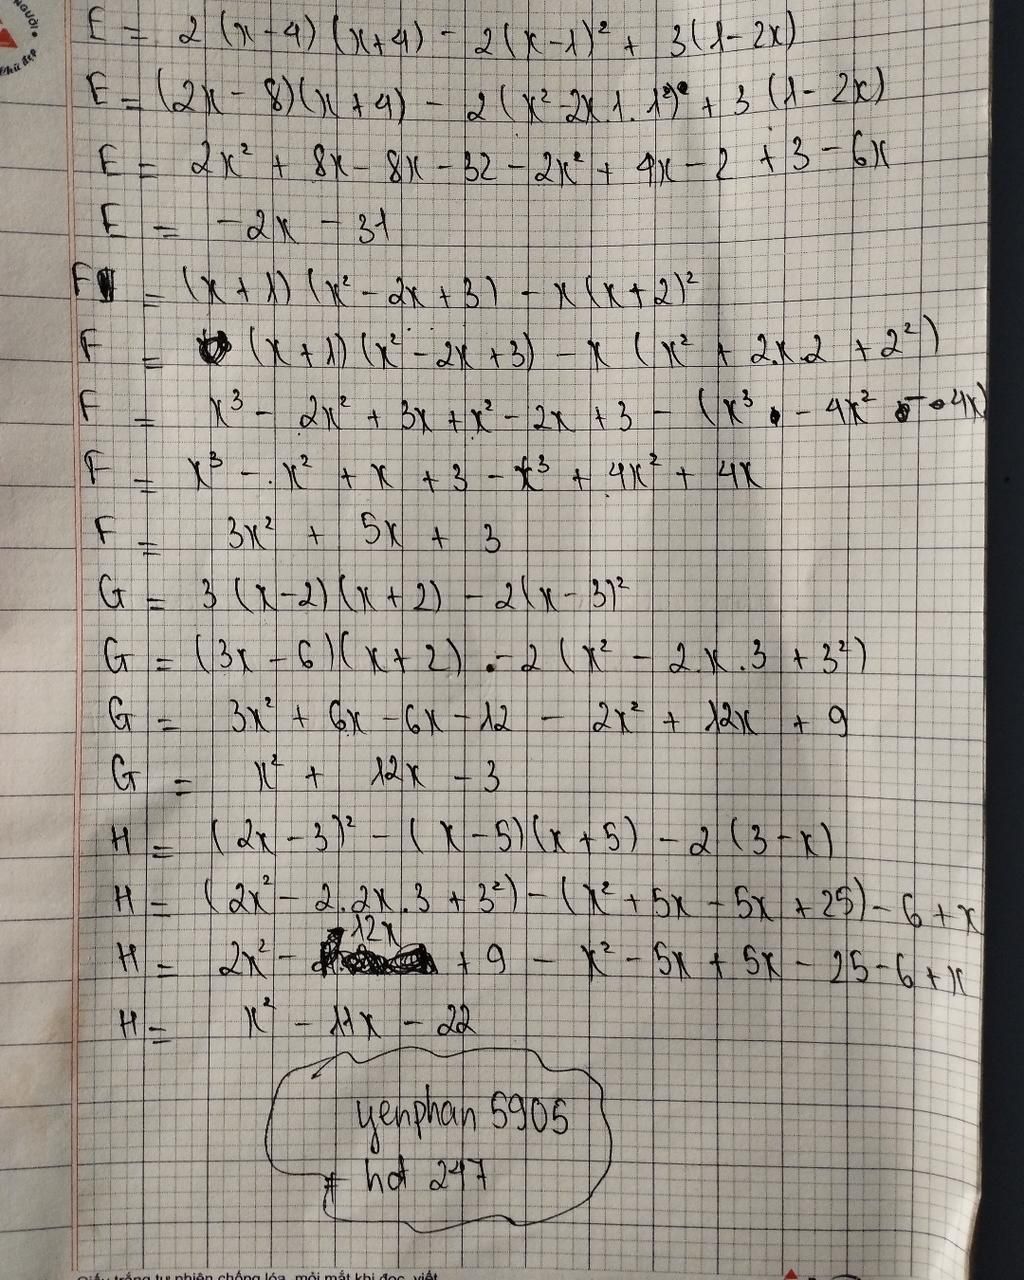 NGƯỜI
Chữ đẹp
E = 2(x-4)(x+4) - 2(x-1)² + 3(1-2x)
E = (2x-8)(x+4) - 2(x²-2x.1.1²) + 3(1-2x)
E = 2x² + 8x - 8x - 32 - 2x² + 4x - 2 + 3 - 6x
E = -2x - 31
F = (x+1)(x²-2x+3) - x(x+2)²
F = (x+1)(x²-2x+3) - x(x² + 2.x.2 + 2²)
F = x³ - 2x² + 3x + x² - 2x + 3 - (x³ - 4x² - 4x)
F = x³ - x² + x + 3 - x³ + 4x² + 4x
F = 3x² + 5x + 3
G = 3(x-2)(x+2) - 2(x-3)²
G = (3x-6)(x+2) - 2(x² - 2.x.3 + 3²)
G = 3x² + 6x - 6x - 12 - 2x² + 12x + 9
G = x² + 12x - 3
H = (2x-3)² - (x-5)(x+5) - 2(3-x)
H = (2x² - 2.2x.3 + 3²) - (x² + 5x - 5x + 25) - 6 + x
H = 2x² - 12x + 9 - x² - 5x + 5x - 25 - 6 + x
H = x² - 11x - 22
yenphan 5905
hd 247
Giấy trắng tự nhiên chống lóa, mỏi mắt khi đọc, viết